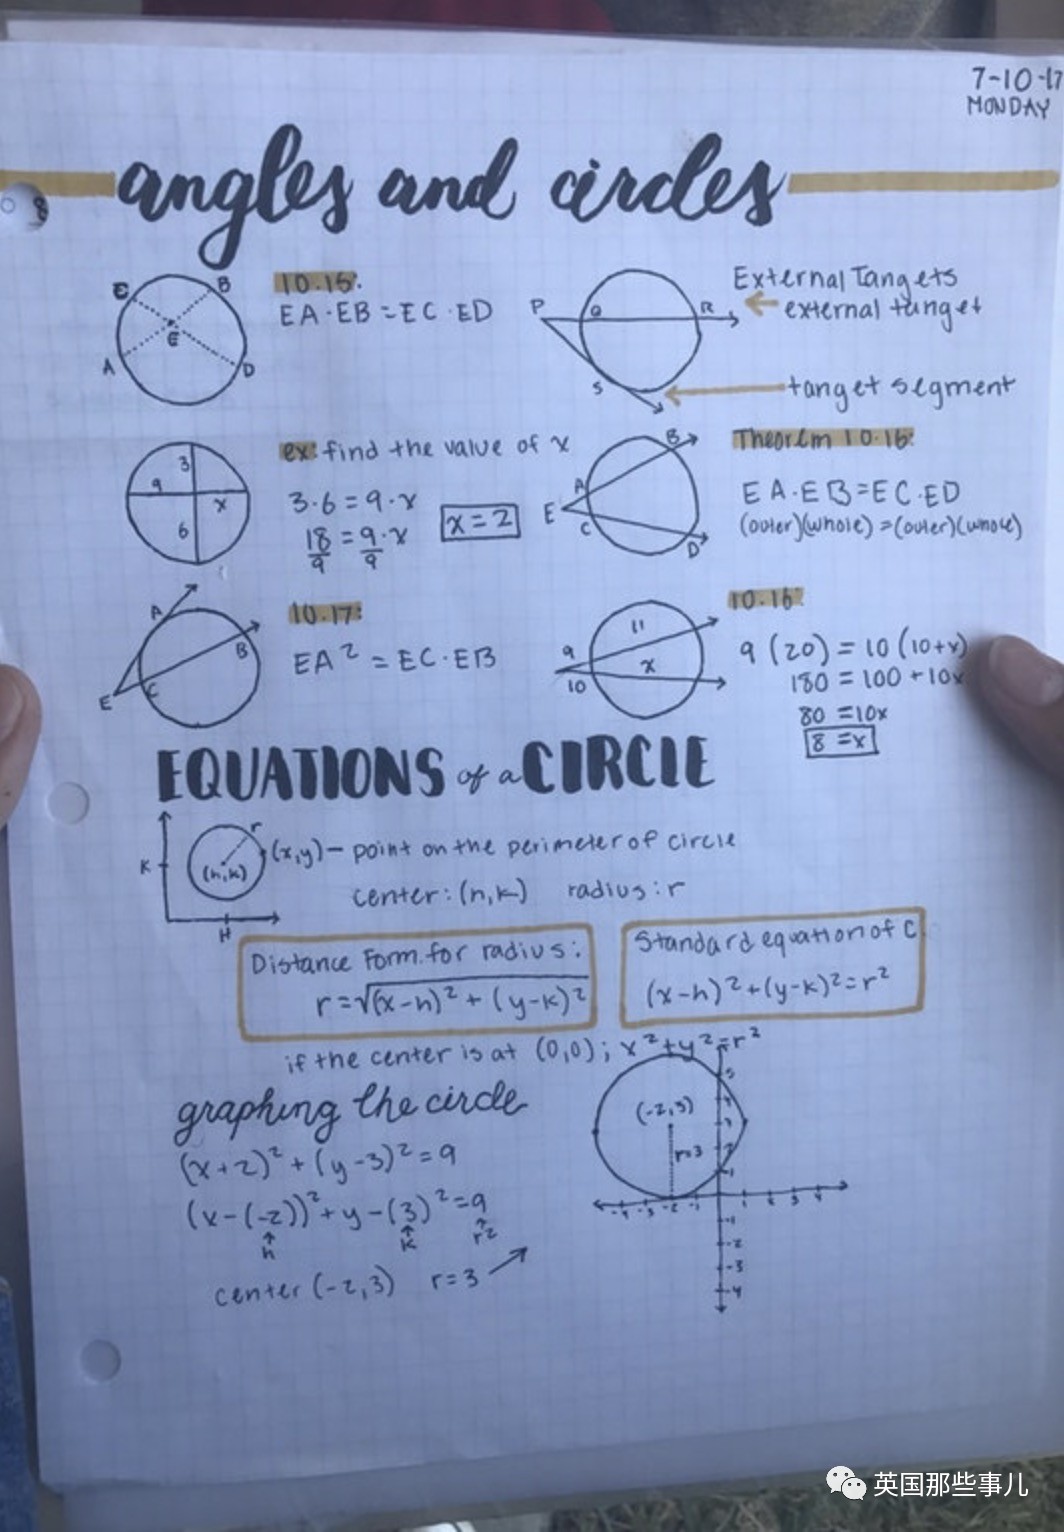 7-10-17
MONDAY
angles and circles
E
B
E
A
D
10.15:
EA·EB=EC·ED
P
Q
R
S
External Tangets
external tanget
tanget segment
3
9
x
6
ex: find the value of x
3·6=9·x
18/9=9·x/9
x=2
A
B
E
C
D
Theorem 10.16:
EA·EB=EC·ED
(outer)(whole)=(outer)(whole)
A
B
E
C
10.17:
EA²=EC·EB
11
9
x
10
10.16:
9(20)=10(10+x)
180=100+10x
80=10x
8=x
EQUATIONS of a CIRCLE
K
r
(h,k)
H
(x,y)- point on the perimeter of circle
center:(h,k) radius:r
Distance Form.for radius:
r=√(x-h)²+(y-k)²
Standard equation of C
(x-h)²+(y-k)²=r²
if the center is at (0,0); x²+y²=r²
graphing the circle
(x+2)²+(y-3)²=9
(x-(-2))²+y-(3)²=9
h
k
r²
center(-2,3) r=3
(-2,3)
r=3
5
4
3
2
1
-4 -3 -2 -1 1 2 3 4
-1
-2
-3
-4
英国那些事儿